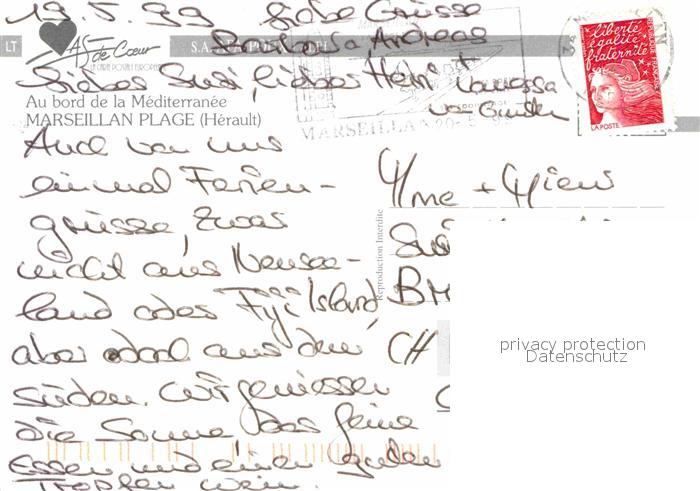 19.5.99 Liebe Grüsse
Barbara Andreas
LT
AS de Cœur
LA CARTE POSTALE EUROPEENNE
S.A.
Liebes Susi, liebes Heiri + Vanessa
Au bord de la Méditerranée
MARSEILLAN PLAGE (Hérault)
MARSEILLAN 20-5-99
liberté
égalité
fraternité
LA POSTE
Auch von uns
einmal Ferien-
grüsse, zwar
nicht aus Neusee-
land oder Fiji Island,
aber doch aus dem
Süden. Wir geniessen
die Sonne, das feine
Essen und einen guten
Tropfen Wein.
Reproduction Interdite
Mme + Mr
Susi
CH
privacy protection
Datenschutz